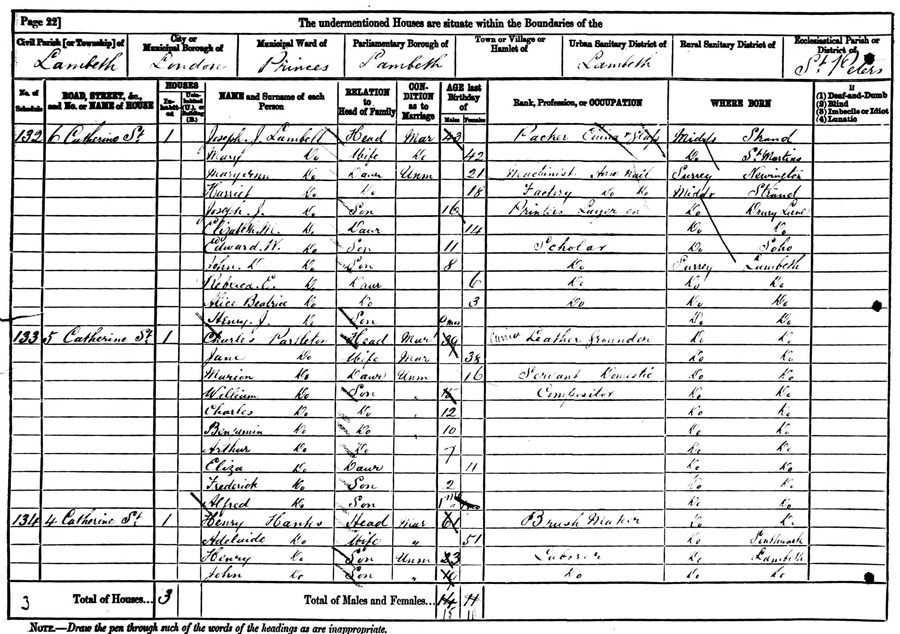 Page 22] The undermentioned Houses are situate within the Boundaries of the
Civil Parish [or Township] of City or Municipal Borough of Municipal Ward of Parliamentary Borough of Town or Village or Hamlet of Urban Sanitary District of Rural Sanitary District of Ecclesiastical Parish or District of
Lambeth London Princes Lambeth Lambeth St Peters
No. of Schedule ROAD, STREET, &c., and No. or NAME of HOUSE HOUSES Inhabited Uninhabited (U.), or Building (B.) NAME and Surname of each Person RELATION to Head of Family CONDITION as to Marriage AGE last Birthday of Males Females Rank, Profession, or OCCUPATION WHERE BORN If (1) Deaf-and-Dumb (2) Blind (3) Imbecile or Idiot (4) Lunatic
132 6 Catherine St 1 Joseph J. Lambell Head Mar 43 Packer Middx Strand
Mary Do Wife Do 42 Do St Martins
Mary Ann Do Daur Unm 21 Machinist Surrey Newington
Harriet Do Do 18 Factory Do Do Middx Strand
Joseph J. Do Son 16 Printers Layer on Do Drury Lane
Elizabeth M. Do Daur 14 Do Do
Edward W. Do Son 11 Scholar Do Soho
John Do Son 8 Do Surrey Lambeth
Rebecca E. Do Daur 6 Do Do Do
Alice Beatrice Do Do 3 Do Do Do
Henry J. Do Son mos Do Do
133 5 Catherine St 1 Charles Partleton Head Mar 39 Currier Leather Grounder Do Do
Jane Do Wife Mar 38 Do Do
Marion Do Daur Unm 16 Servant Domestic Do Do
William Do Son " 15 Compositor Do Do
Charles Do Do " 12 Do Do
Benjamin Do Do 10 Do Do
Arthur Do Do 7 Do Do
Eliza Do Daur 11 Do Do
Frederick Do Son 2 Do Do
Alfred Do Son 1 mo Do Do
134 4 Catherine St 1 Henry Hanks Head Mar 61 Brush Maker Do Do
Adelaide Do Wife " 51 Do Southwark
Henry Do Son Unm 23 Laborer Do Lambeth
John Do Son " 16 Do Do Do
3 Total of Houses... 3 Total of Males and Females... 14 11
15 10
NOTE.—Draw the pen through such of the words of the headings as are inappropriate.